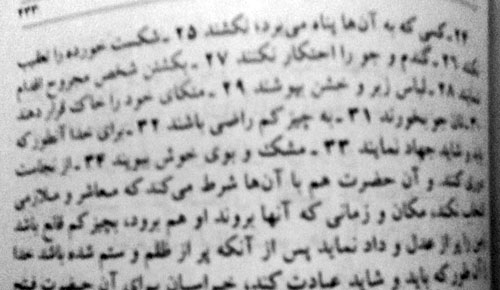 ۲۳۳
۲۴ـ کسی که به آن‌ها پناه می‌برد، نکشند ۲۵ ـ شکست خورده را تعقیب
نکنند ۲۶ ـ گندم و جو را احتکار نکنند ۲۷ ـ بکشتن شخص مجروح اقدام
ننمایند ۲۸ ـ لباس زبر و خشن بپوشند ۲۹ ـ متکای خود را خاک قرار دهند
۳۰ـ نان جو بخورند ۳۱ ـ به چیز کم راضی باشند ۳۲ ـ برای خدا آنطورکه
باید و شاید جهاد نمایند ۳۳ ـ مشک و بوی خوش ببویند ۳۴ ـ از نجاست
دوری کنند و آن حضرت هم با آن‌ها شرط می‌کند که معاشر و ملازمی
انتخاب نکند، مکان و زمانی که آنها بروند او هم برود، بچیز کم قانع باشد
زمین را پر از عدل و داد نماید پس از آنکه پر از ظلم و ستم شده باشد خدا
را آنطورکه باید و شاید عبادت کند، خراسان برای آن حضرت فتح